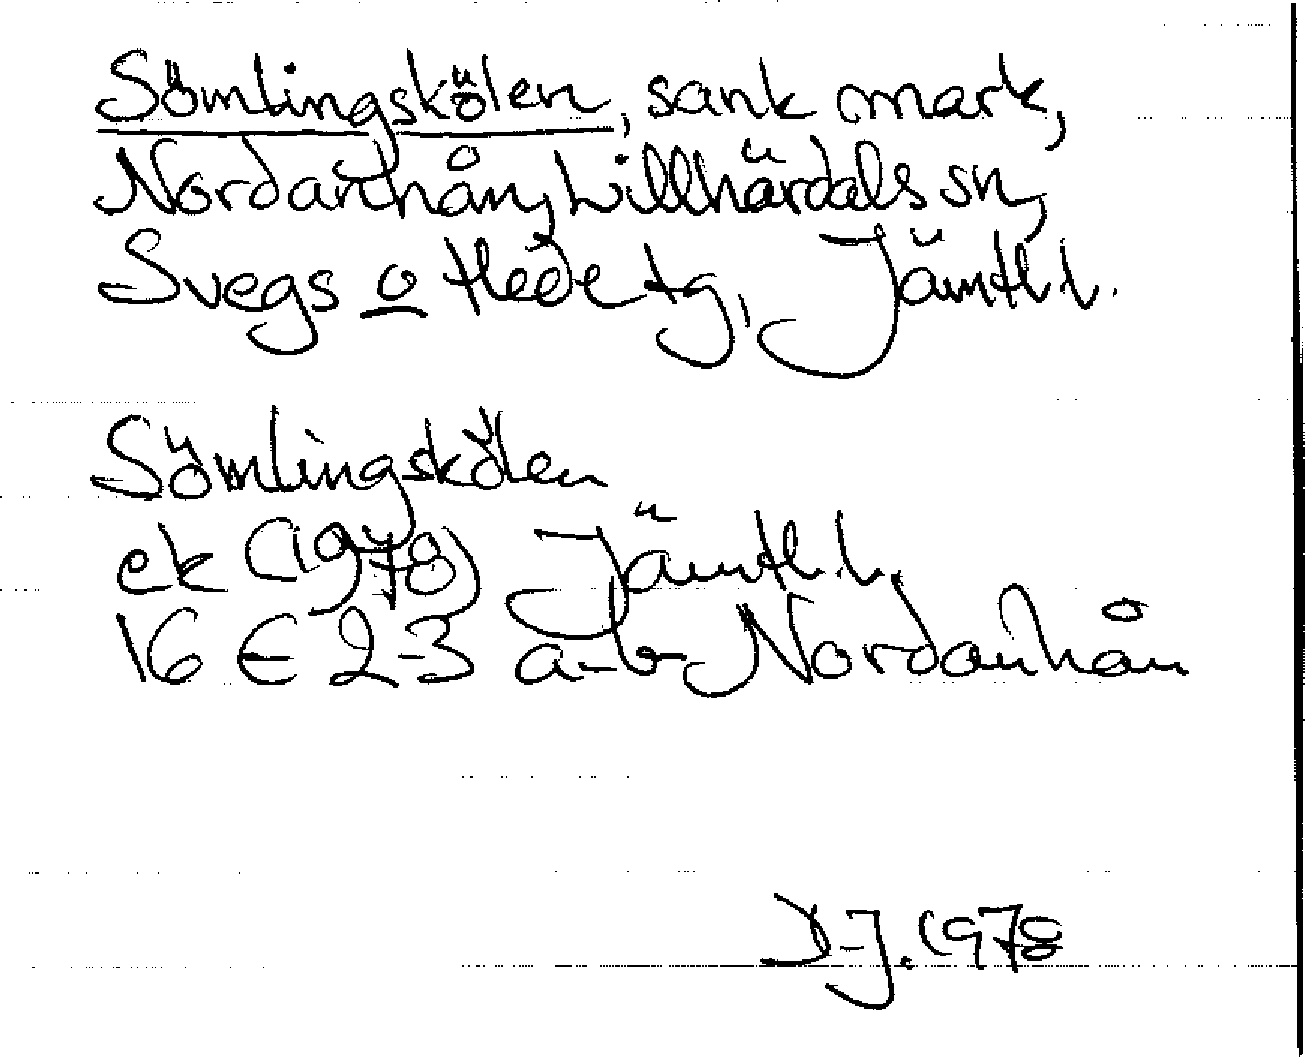 Sömlingskölen, sank mark,
Nordanhån, Lillhärdals sn,
Svegs o Hede tg, Jämtl. l.
Sömlingskölen
ek (1978) Jämtl. l.
16 E 2-3 a-b Nordanhån
1978